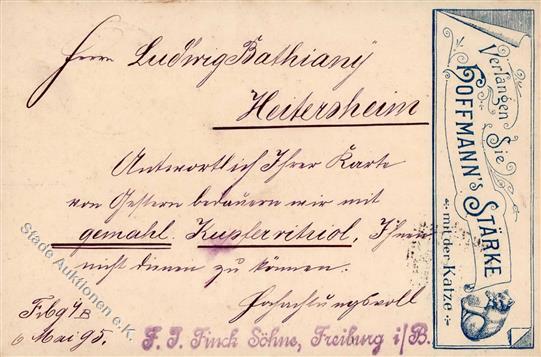 Herrn Ludwig Bathiany
Heitersheim
Antwortlich Ihrer Karte
von Gestern bedauern wir mit
gemahl. Kupfervitriol, Ihnen
nicht dienen zu können.
Hochachtungsvoll
Frbg i/B
6 Mai 95.
F. J. Finck Söhne, Freiburg i/B.
Verlangen Sie
HOFFMANN'S STÄRKE
mit der Katze
Stade Auktionen e.K.